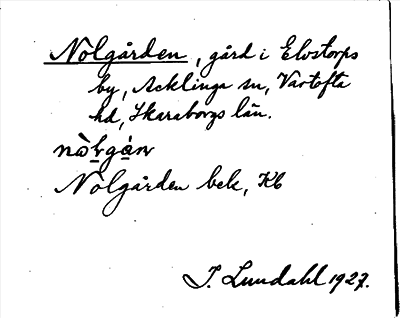 Nolgården, gård i Elvstorps
by, Acklinga sn, Vartofta
hd, Skaraborgs län.
Nolgården bek, Kb
I. Lundahl 1927.